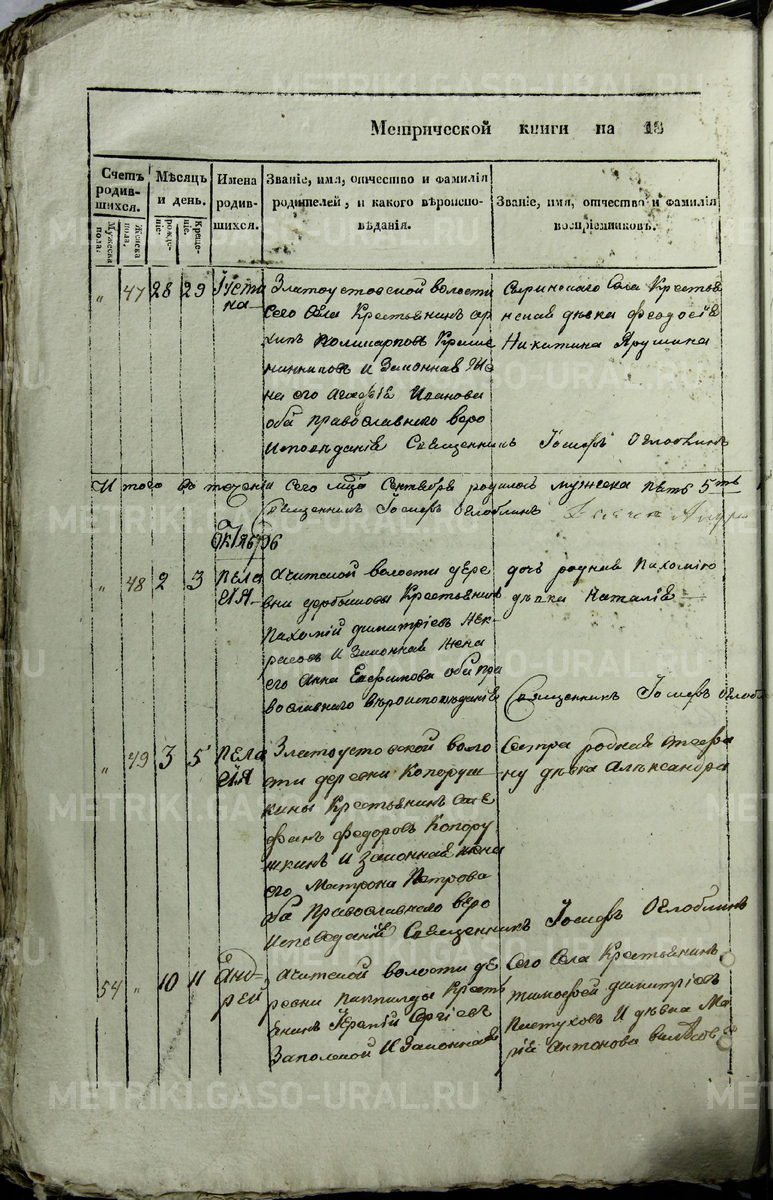 METRIKI.GASO-URAL.RU
Метрической книги на 18
Счетъ родив-шихся.
Мужеска пола.
Женска пола.
Мѣсяцъ и день.
рожде-ніе.
Креще-ніе.
Имена родив-шихся.
Званіе, имя, отчество и фамилія родителей, и какого вѣроиспо-вѣданія.
Званіе, имя, отчество и фамилія воспріемниковъ.
„ 47 28 29 Усти
на
Златоустовской волости
сего села Крестьянинъ ар
хипъ Поликарповъ
и Законная Же
на его Иванова
оба православнаго веро
Исповѣданія Священникъ Іосифъ Оглоблинъ
села Крестья
нская дѣвка феодосія
Никитина Ярушина
Итого въ теченіи сего м-ца Сентября родилось мужеска пять 5ть
Священникъ Іосифъ Оглоблинъ
Октябрь
„ 48 2 3 Пела
гія
Ачитской волости дере
вни Крестьянинъ
Пахомій димитріевъ Нек
расовъ и Законная Жена
его Анна оба пра
вославнаго вѣроисповѣданія
дочь родная Пахомію
дѣвка Наталія
Священникъ Іосифъ Оглобл
„ 49 3 5 Пела
гія
Златоустовской воло
сти деревни Копоруш
кины Крестьянинъ Сте
фанъ федоровъ Копору
шкинъ и законная жена
его Матрона Петрова
оба Православнаго веро
Исповеданія Священникъ Іосифъ Оглоблинъ
Сестра родная стефа
ну дѣвка Александра
54 „ 10 11 Анд-
рей
Ачитской волости де
ревни Кресть
янинъ Сергіевъ
Заполской и Законная
Сего Села Крестьянинъ
тимофей димитріевъ
Пастуховъ и дѣвка Ма
рія Антонова